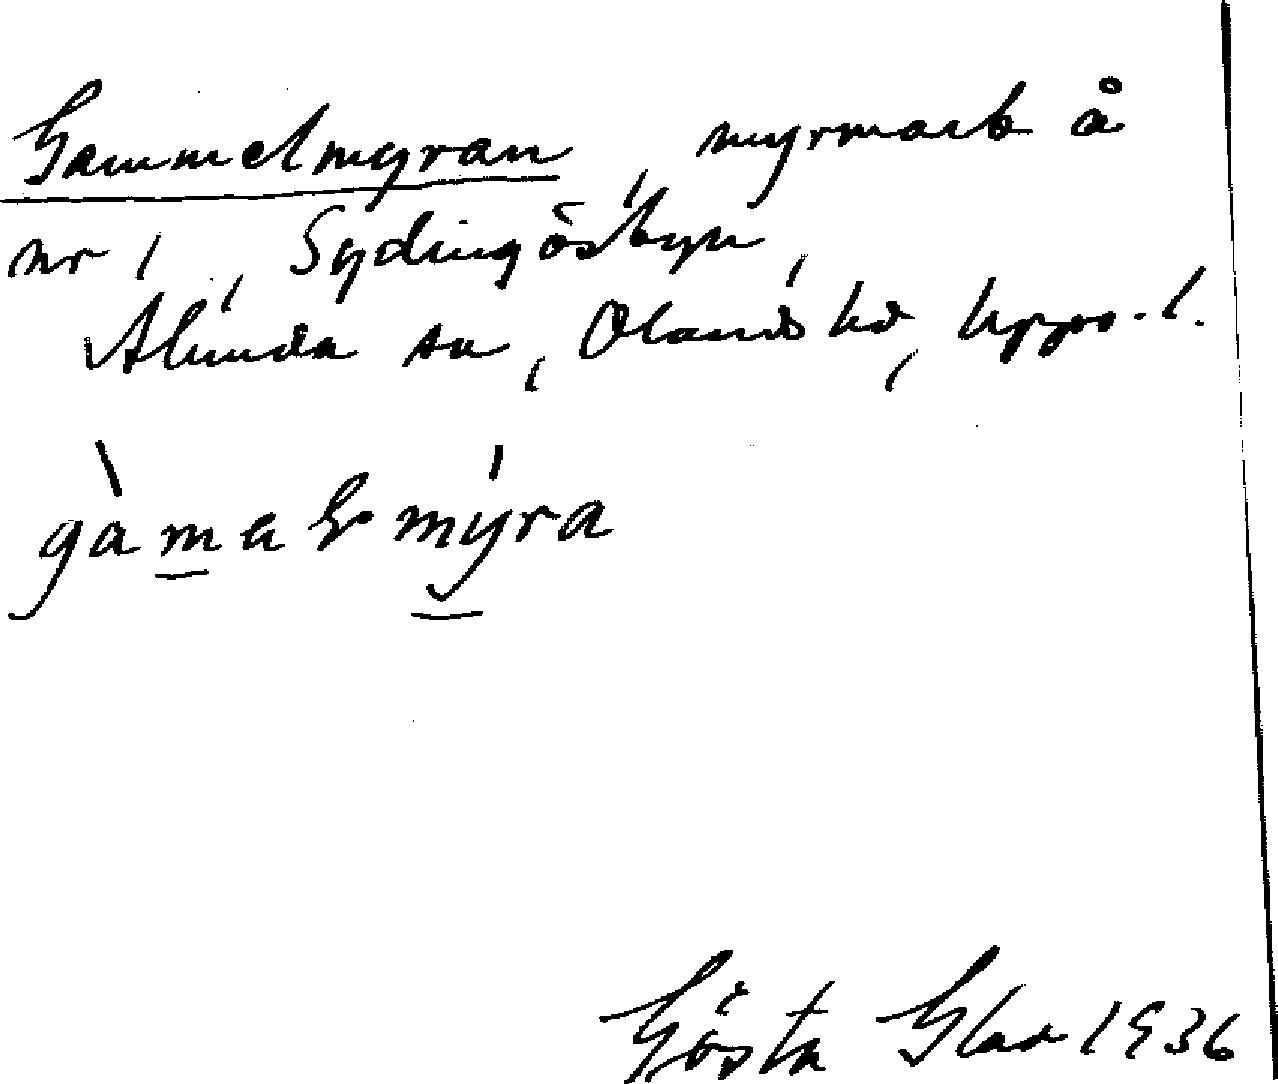 Gammelmyran, myrmark å
nr 1, Sydingösbyn,
Alunda sn, Olands hd, Upps. l.
gàmalmýra
Gösta Glad 1936